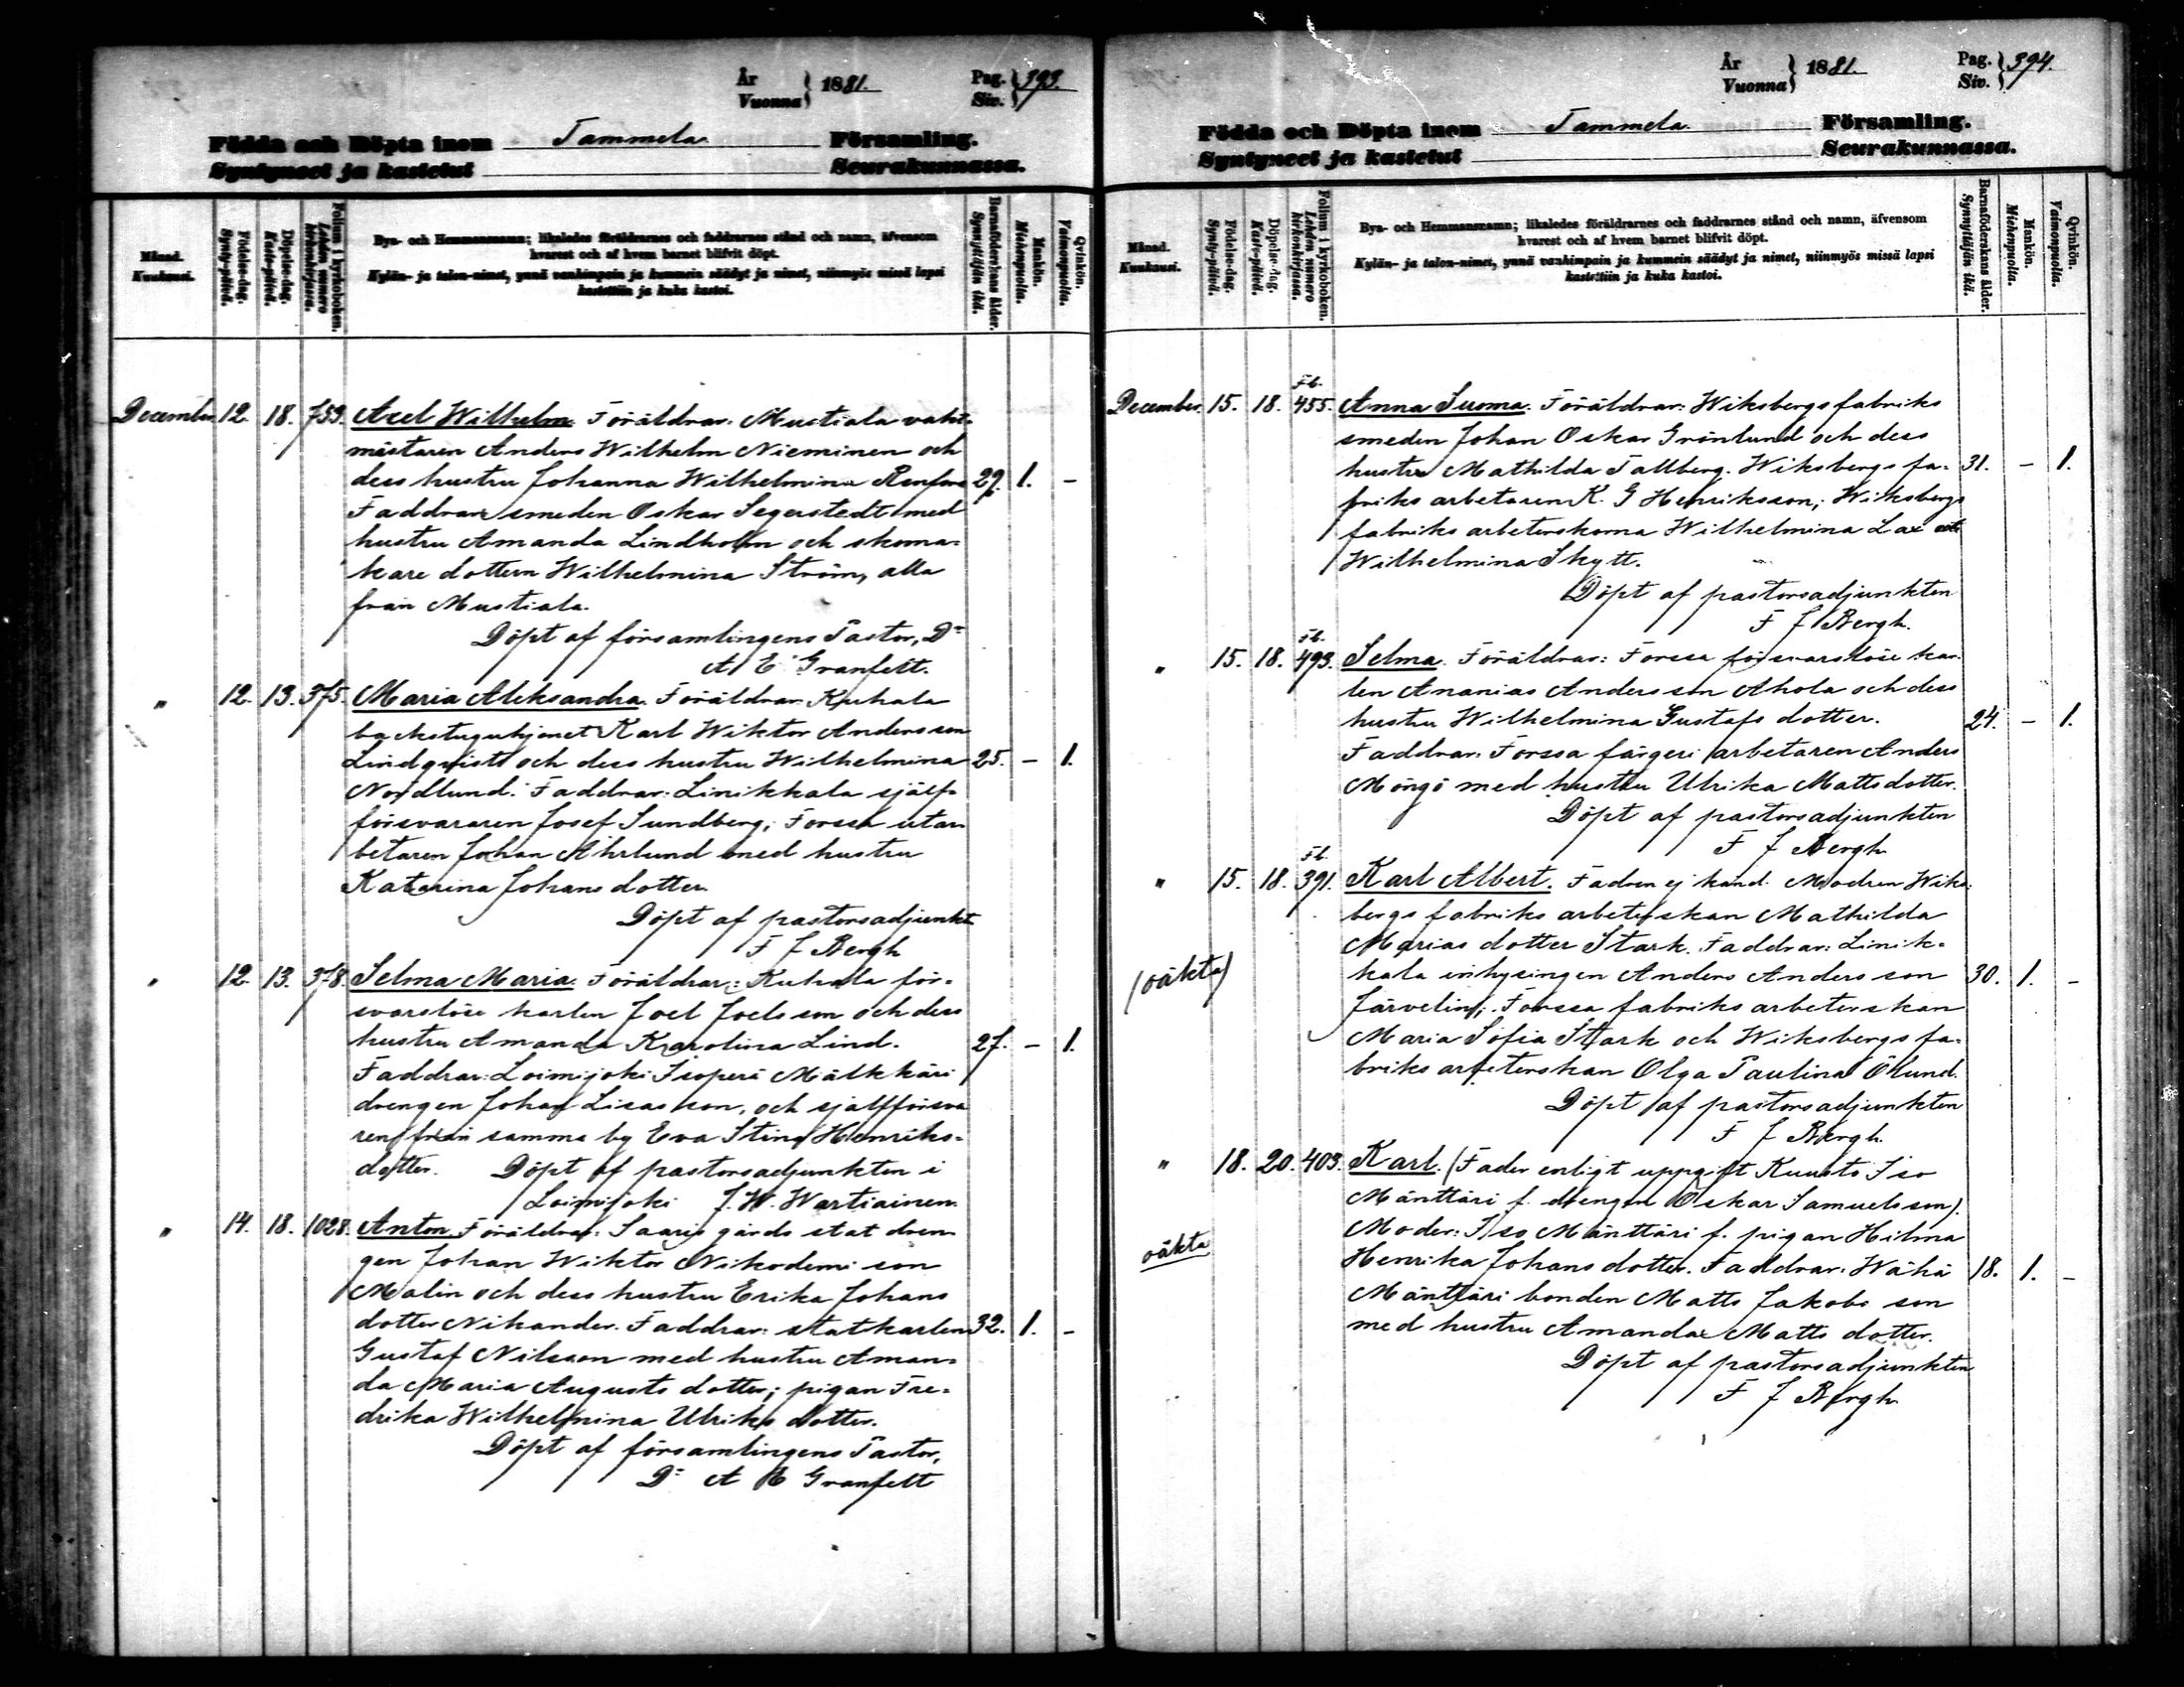 År
Vuonna } 1881.
Pag.
Siv. } 393.
Födda och Döpta inom Tammela Församling.
Syntyneet ja kastetut Seurakunnassa.
Månad.
Kuukausi.
Födelse-dag.
Synty-päivä.
Döpelse-dag.
Kaste-päivä.
Folium i kyrkoboken.
Lehden numero kirkonkirjassa.
Bya- och Hemmansnamn; likaledes föräldrarnes och faddrarnes stånd och namn, äfvensom
hvarest och af hvem barnet blifvit döpt.
Kylän- ja talon-nimet, ynnä vanhimpain ja kummein säädyt ja nimet, niinmyös missä lapsi
kastettiin ja kuka kastoi.
Barnaföderskans ålder.
Synnyttäjän ikä.
Mankön.
Miehenpuolia.
Qvinkön.
Vaimonpuolia.
December 12. 18. 739. Axel Wilhelm. Föräldrar: Mustiala vakt-
mästaren Anders Wilhelm Nieminen och
dess hustru Johanna Wilhelmina Renfors 29. 1. -
Faddrar smeden Oskar Segerstedt med
hustru Amanda Lindholm och skoma-
kare dottern Wilhelmina Ström, alla
från Mustiala.
Döpt af församlingens Pastor, Dr
A E Granfelt.
" 12. 13. 375. Maria Aleksandra. Föräldrar Kuhala
backstuguhjonet Karl Wiktor Andersson
Lindqvist och dess hustru Wilhelmina 25. - 1.
Nordlund. Faddrar: Linikkala själf-
försvararen Josef Sundberg; Forssa utar-
betaren Johan Ahrlund med hustru
Katarina Johans dotter.
Döpt af pastorsadjunkt
F J Bergh
" 12. 13. 378. Selma Maria. Föräldrar: Kuhala för-
svarslöse karlen Joel Joels son och dess
hustru Amanda Karolina Lind. 27. - 1.
Faddrar: Loimijoki Isoperä Mälkkäri
drengen Johan Lisas son, och sjelfförsva
ren från samma by Eva Stina Henriks-
dotter. Döpt af pastorsadjunkten i
Loimijoki J. W. Wartiainen
" 14. 18. 1028. Anton Föräldrar: Saaris gårds stat dren-
gen Johan Wiktor Nikodemi son
Malin och dess hustru Erika Johans
dotter Nikander. Faddrar: statkarlen 32. 1. -
Gustaf Nilsson med hustru Aman-
da Maria Augusts dotter; pigan Fre-
drika Wilhelmina Ulriks dotter.
Döpt af församlingens Pastor,
Dr A E Granfelt
År
Vuonna } 1881.
Pag.
Siv. } 394.
Födda och Döpta inom Tammela. Församling.
Syntyneet ja kastetut Seurakunnassa.
Månad.
Kuukausi.
Födelse-dag.
Synty-päivä.
Döpelse-dag.
Kaste-päivä.
Folium i kyrkoboken.
Lehden numero kirkonkirjassa.
Bya- och Hemmansnamn; likaledes föräldrarnes och faddrarnes stånd och namn, äfvensom
hvarest och af hvem barnet blifvit döpt.
Kylän- ja talon-nimet, ynnä vanhimpain ja kummein säädyt ja nimet, niinmyös missä lapsi
kastettiin ja kuka kastoi.
Barnaföderskans ålder.
Synnyttäjän ikä.
Mankön.
Miehenpuolia.
Qvinkön.
Vaimonpuolia.
Fb.
December. 15. 18. 455. Anna Suoma. Föräldrar: Wiksbergs fabriks
smeden Johan Oskar Grönlund och dess
hustru Mathilda Tallberg. Wiksbergs fa- 31. - 1.
briks arbetaren K. G Henriksson; Wiksbergs
fabriks arbeterskorna Wilhelmina Lax och
Wilhelmina Skytt.
Döpt af pastorsadjunkten
F J Bergh.
Fb.
" 15. 18. 493. Selma. Föräldrar: Forssa försvarslöse kar-
len Ananias Anders son Ahola och dess
hustru Wilhelmina Gustafs dotter. 24. - 1.
Faddrar: Forssa färgeri arbetaren Anders
Möngö med hustru Ulrika Matts dotter.
Döpt af pastorsadjunkten
F J Bergh
Fb.
" 15. 18. 391. Karl Albert. Fadren ej känd. Modren Wiks-
bergs fabriks arbeterskan Mathilda
Marias dotter Stark. Faddrar: Linik-
(oäkta) kala inhysingen Anders Anders son 30. 1. -
Järvelin; Forssa fabriks arbeterskan
Maria Sofia Stark och Wiksbergs fa-
briks arbeterskan Olga Paulina Ölund.
Döpt af pastorsadjunkten
F J Bergh.
" 18. 20. 403. Karl. (Fader enligt uppgift Kuusto Iso
Mänttäri f. drengen Oskar Samuels son).
Moder: Iso Mänttäri f. pigan Hilma
oäkta Henrika Johans dotter. Faddrar: Wähä 18. 1. -
Mänttäri bonden Matts Jakobs son
med hustru Amanda Matts dotter.
Döpt af pastorsadjunkten
F J Bergh